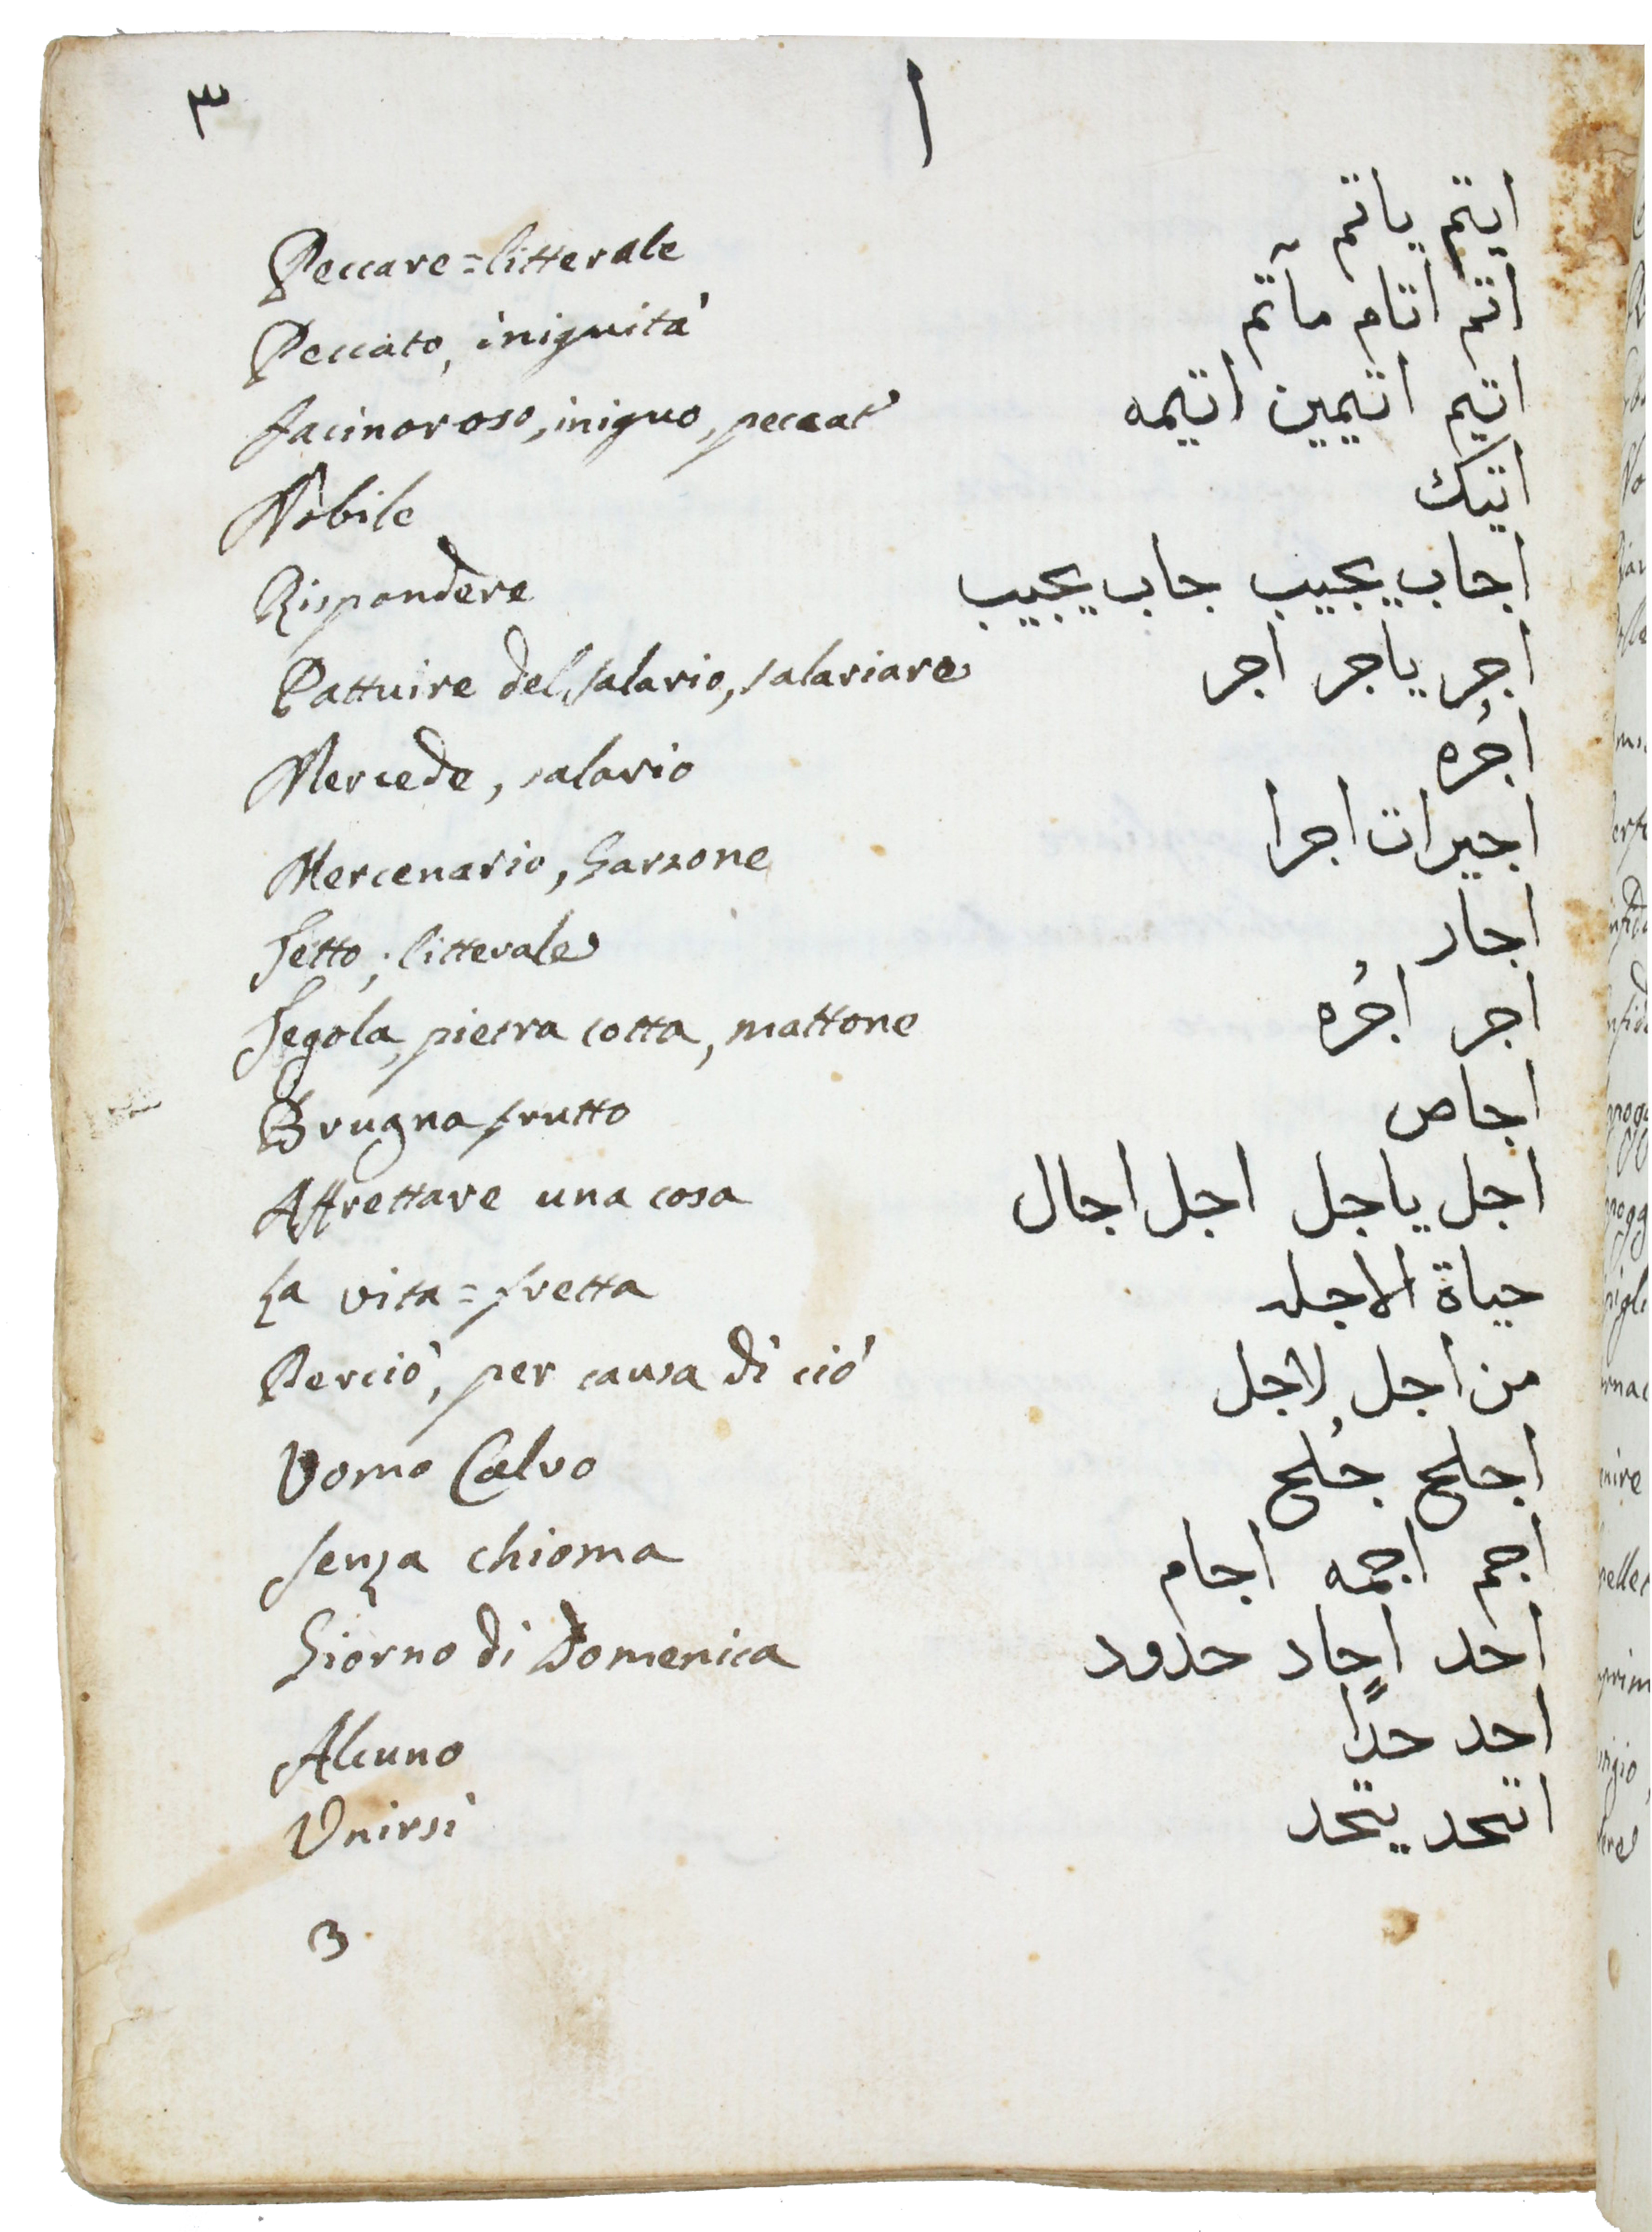 ٣
ا
Peccare = litterale ايتم ياتم
Peccato, iniquità اتم اتام مآتم
facinoroso, iniquo, peccat اتيم اتيمين اتيمه
Nobile اتيك
Rispondere اجاب يجيب جاب يجيب
Pattuire del salario, salariare اجر ياجر اجر
Mercede, salario اجُره
Mercenario, Garzone اجيرات اجرا
Tetto, litterale اجار
Tegola, pietra cotta, mattone اجر اجُره
Brugna frutto اجاص
Affrettare una cosa اجل ياجل اجل اجال
La vita = fretta حياة الاجله
Perciò, per causa di ciò من اجل لاجل
Uomo Calvo اجلح جُلح
Senza chioma اجم اجمه اجام
Giorno di Domenica احد احاد حدود
Alcuno احد حدا
Unirsi اتحد يتحد
3